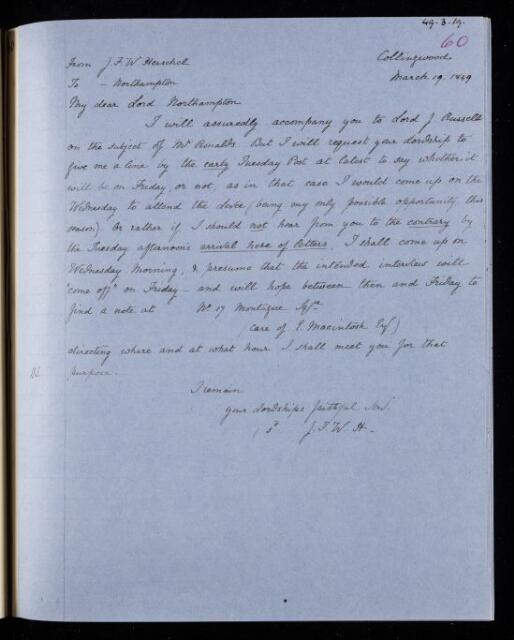 49.3.19.
60
From J F W Herschel
Collingwood
To — Northampton
March 19. 1849
My dear Lord Northampton
I will assuredly accompany you to Lord J Russell
on the subject of Mr Ronalds. But I will request your Lordship to
give me a line by the early Tuesday Post at latest to say whether it
will be on Friday, or not, as in that case I would come up on the
Wednesday to attend the Levee (being my only possible opportunity this
season) Or rather if I should not hear from you to the contrary by
the Tuesday afternoon's arrival here of letters, I shall come up on
Wednesday Morning, & presume that the intended interview will
"come off" on Friday — and will hope between then and Friday to
find a note at No 17 Montague Sqre
(care of E. Macintosh Esq)
directing where and at what hour I shall meet you for that
purpose.
I remain
your Lordships faithful
J. F. W. H.